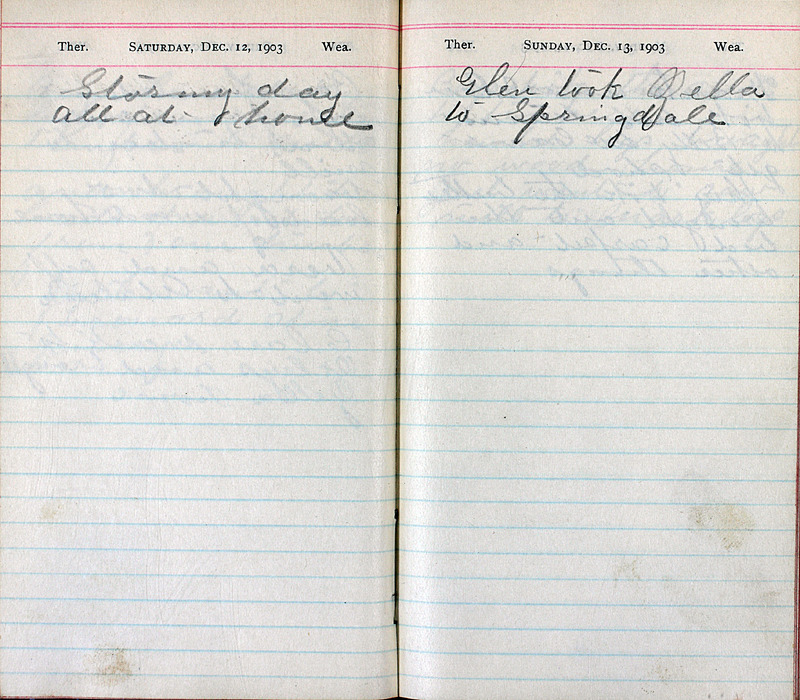 Ther. Saturday, Dec. 12, 1903 Wea.
Stormy day
all at home
Ther. Sunday, Dec. 13, 1903 Wea.
Glen took Della
to Springdale